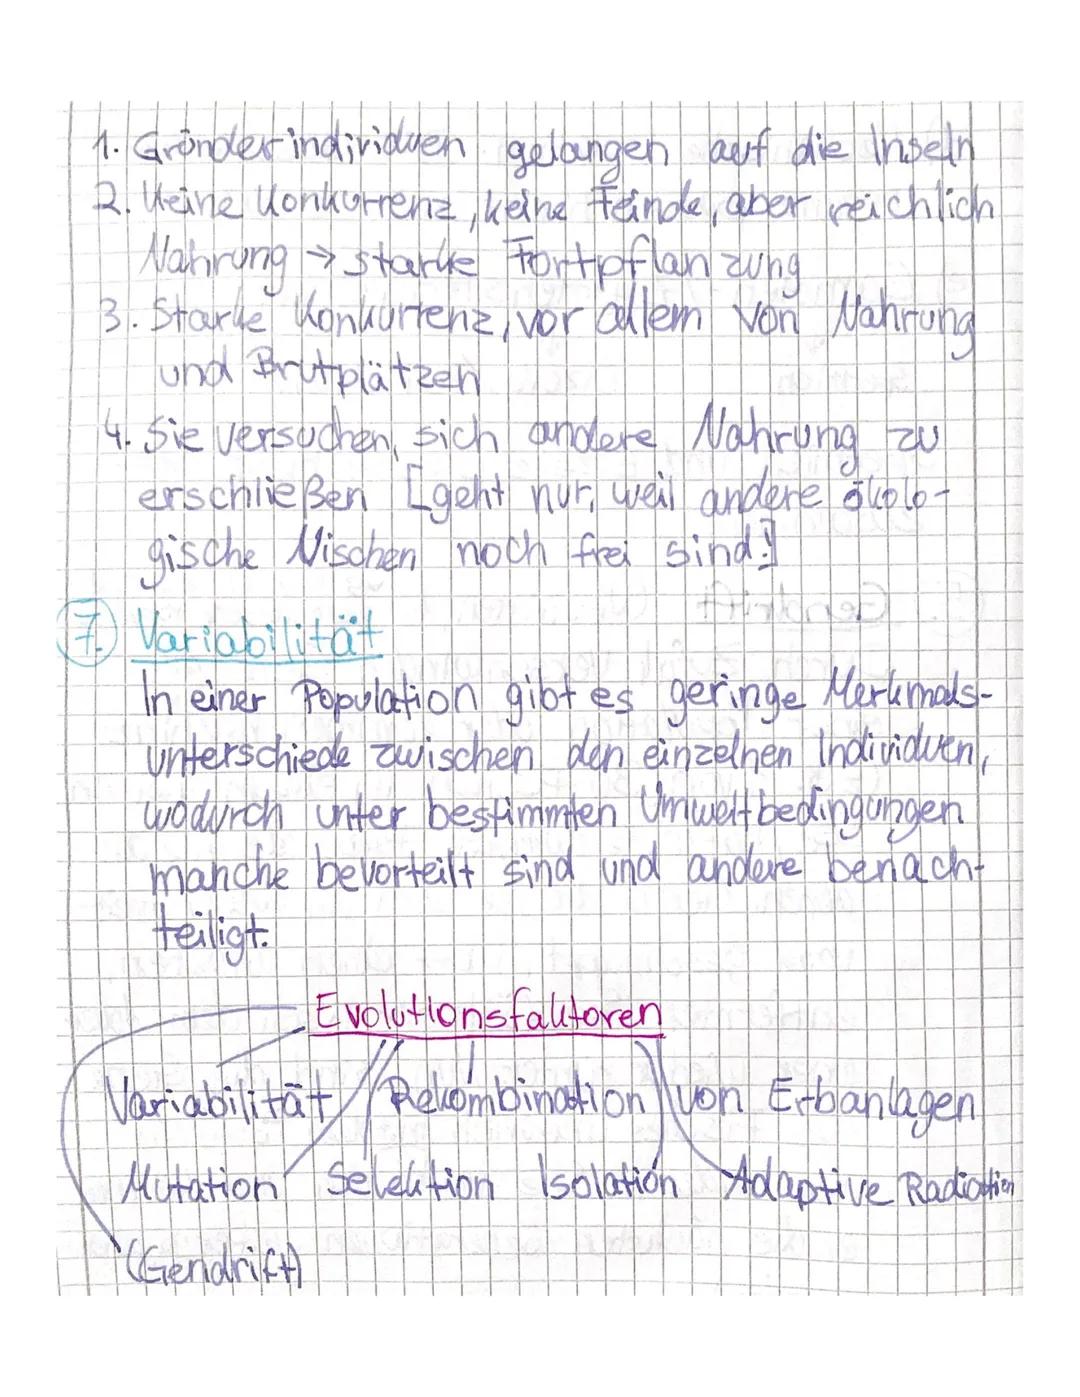 1. Gründerindividuen gelangen auf die Inseln
2. Keine Konkurrenz, keine Feinde, aber reichlich
Nahrung → starke Fortpflanzung
3. Starke Konkurrenz, vor allem von Nahrung
und Brutplätzen
4. Sie versuchen, sich andere Nahrung zu
erschließen [geht nur, weil andere ökolo-
gische Nischen noch frei sind!]
7. Variabilität
In einer Population gibt es geringe Merkmals-
unterschiede zwischen den einzelnen Individuen,
wodurch unter bestimmten Umweltbedingungen
manche bevorteilt sind und andere benach-
teiligt.
Evolutionsfaktoren
Variabilität Rekombination von Erbanlagen
Mutation Selektion Isolation Adaptive Radiation
(Gendrift)